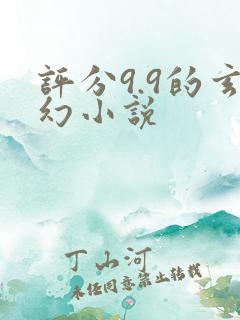 評分9.9的玄
幻小說
丁山河
未經同意禁止轉載